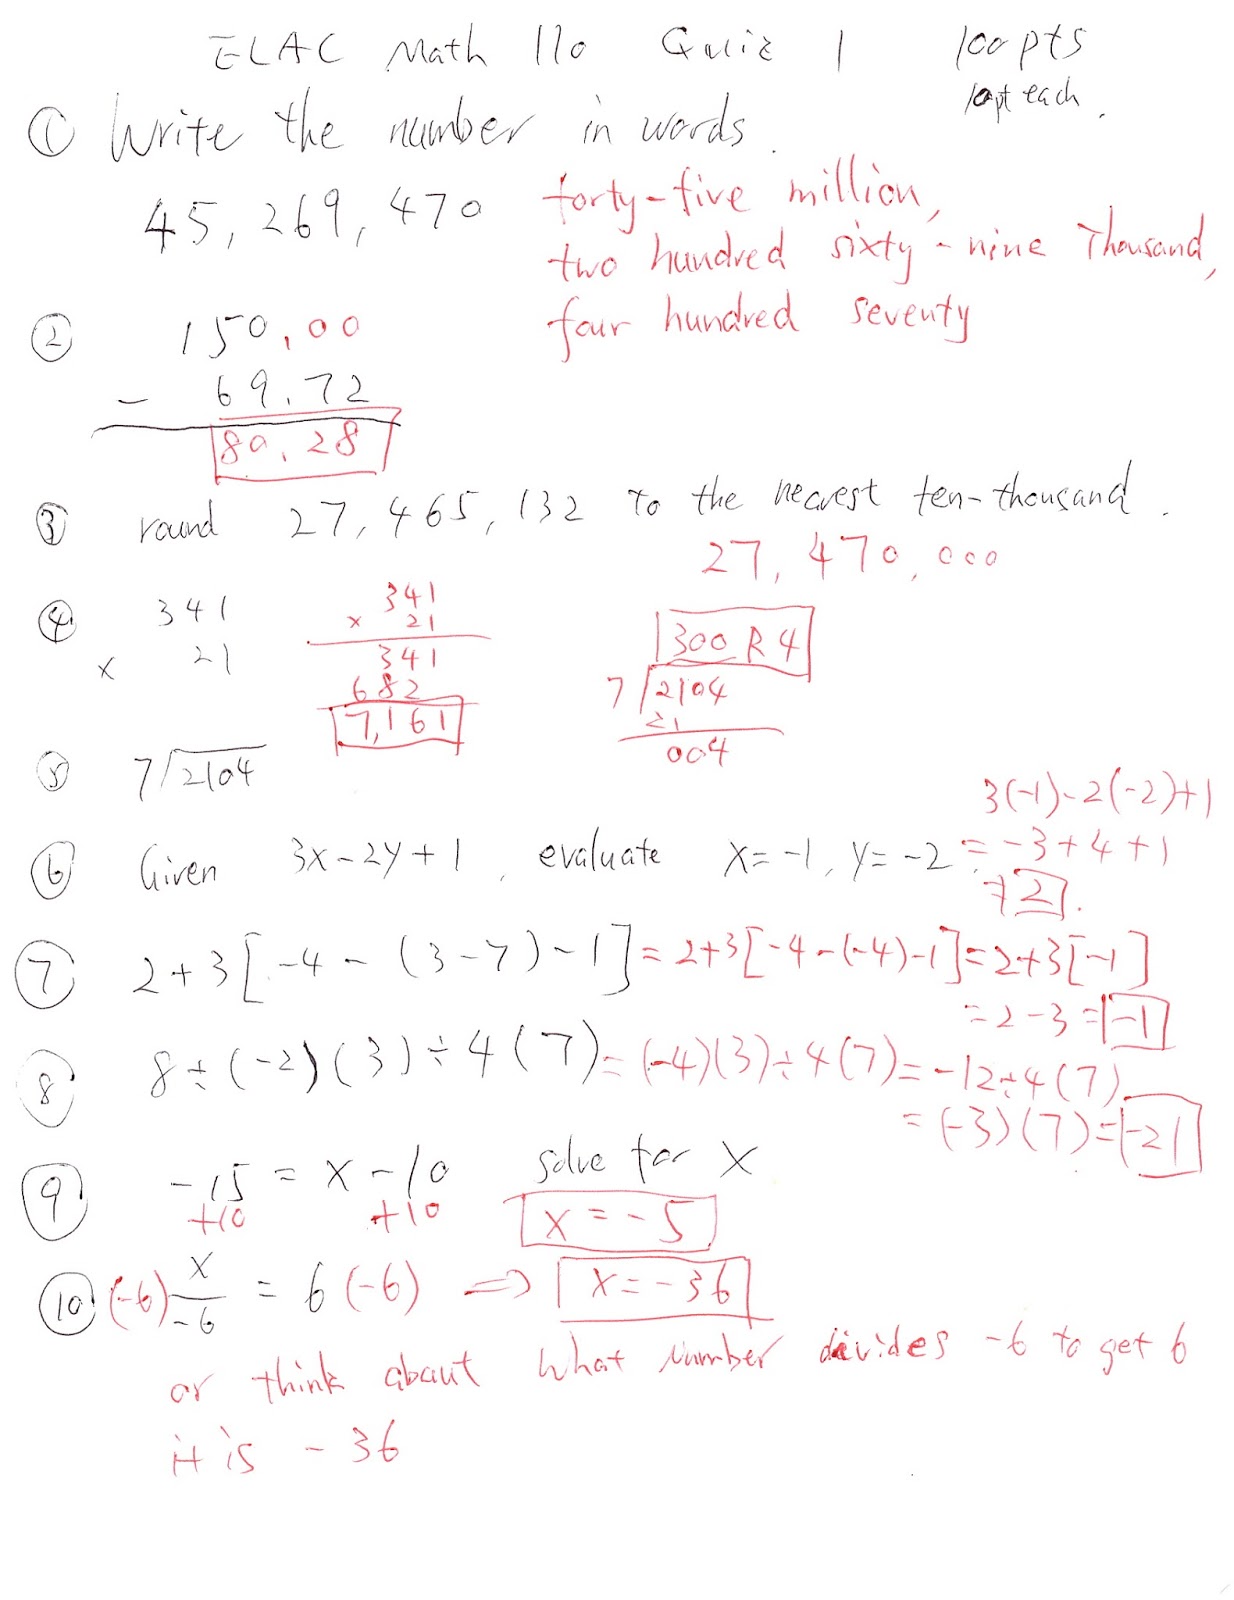 ELAC Math 110 Quiz 1 100 pts
10pt each.
① Write the number in words.
45,269,470 forty-five million,
two hundred sixty-nine Thousand,
four hundred seventy
② 150.00
- 69.72
80.28
③ round 27,465,132 to the nearest ten-thousand.
27,470,000
④ 341
x 21
341
x 21
341
682
7,161
300 R 4
7 2104
21
004
⑤ 7 2104
3(-1)-2(-2)+1
⑥ Given 3x-2y+1, evaluate x=-1, y=-2 = -3+4+1
= 2.
⑦ 2+3[-4-(3-7)-1] = 2+3[-4-(-4)-1] = 2+3[-1]
= 2-3 = -1
⑧ 8÷(-2)(3)÷4(7) = (-4)(3)÷4(7) = -12÷4(7)
= (-3)(7) = -21
⑨ -15 = x-10 solve for x
+10 +10 x = -5
⑩ (-6) x/-6 = 6 (-6) ⇒ x = -36
or think about what number divides -6 to get 6
it is -36